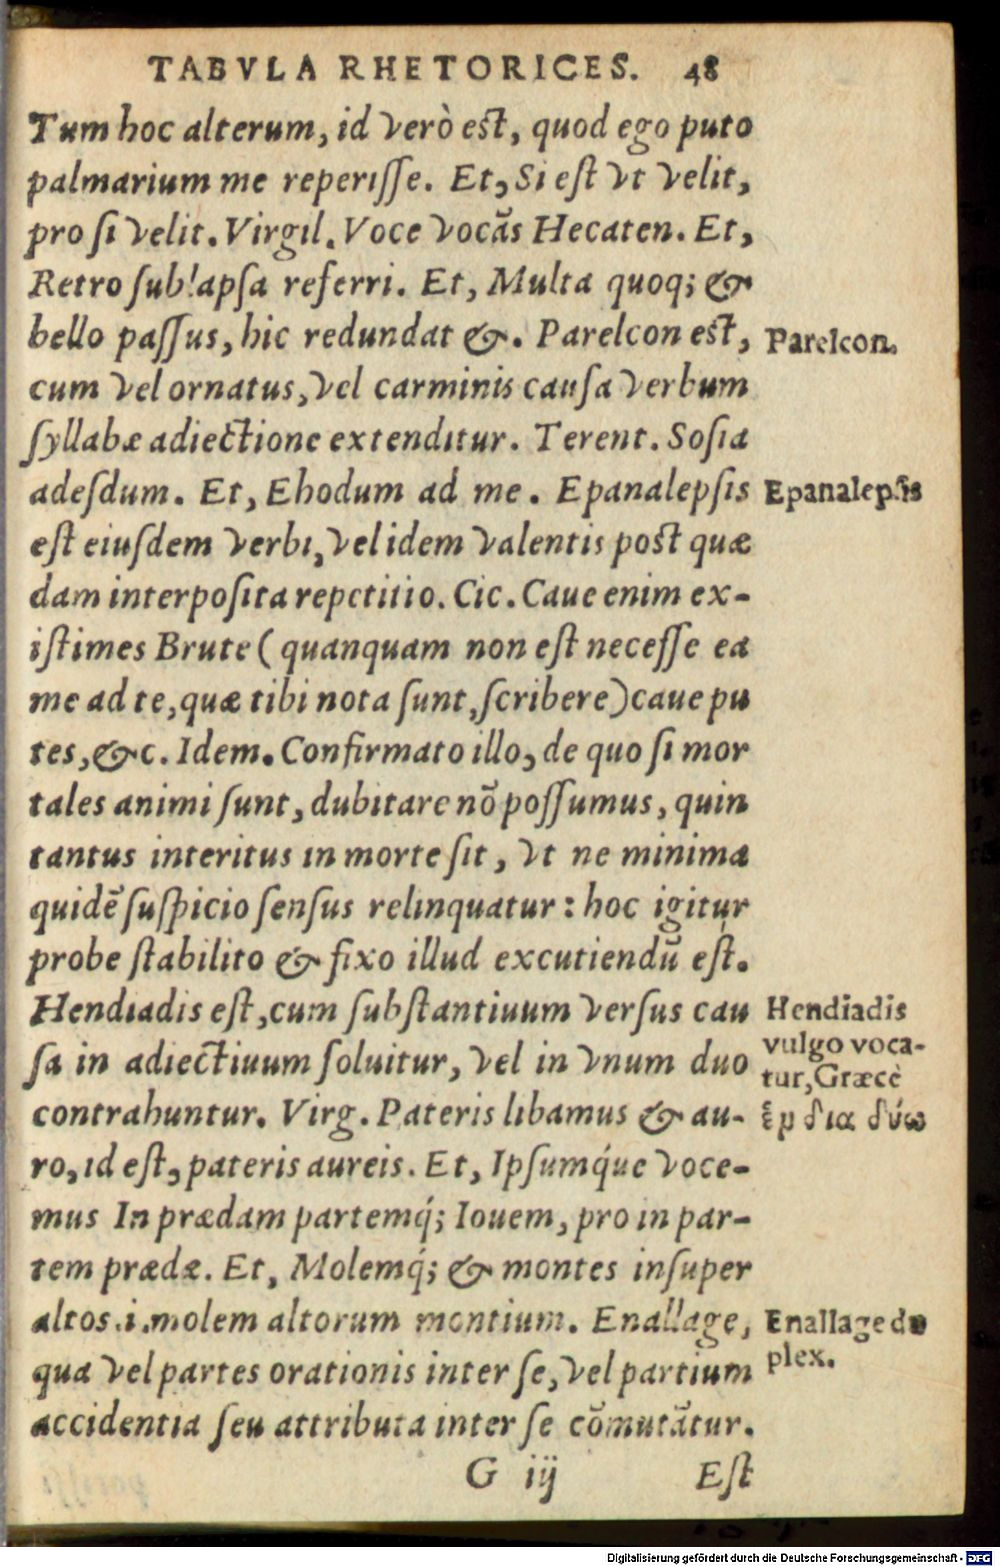 TABVLA RHETORICES. 48
Tum hoc alterum, id verò est, quod ego puto
palmarium me reperisse. Et, Si est vt velit,
pro si velit. Virgil. Voce vocãs Hecaten. Et,
Retro sublapsa referri. Et, Multa quoq; &
bello passus, hic redundat &. Parelcon est,
Parelcon.
cum vel ornatus, vel carminis causa verbum
syllabæ adiectione extenditur. Terent. Sosia
adesdum. Et, Ehodum ad me. Epanalepsis
Epanalepsis
est eiusdem verbi, vel idem valentis post quæ
dam interposita repetitio. Cic. Caue enim ex-
istimes Brute (quanquam non est necesse ea
me ad te, quæ tibi nota sunt, scribere) caue pu
tes, &c. Idem. Confirmato illo, de quo si mor
tales animi sunt, dubitare nõ possumus, quin
tantus interitus in morte sit, vt ne minima
quidẽ suspicio sensus relinquatur: hoc igitur
probe stabilito & fixo illud excutiendũ est.
Hendiadis est, cum substantiuum versus cau
Hendiadis
sa in adiectiuum soluitur, vel in vnum duo
vulgo voca-
tur, Græcè
contrahuntur. Virg. Pateris libamus & au-
ἓν δια δύω
ro, id est, pateris aureis. Et, Ipsumq́ue voce-
mus In prædam partemq́; Iouem, pro in par-
tem prædæ. Et, Molemq́; & montes insuper
altos .i. molem altorum montium. Enallage,
Enallage du
qua vel partes orationis inter se, vel partium
plex.
accidentia seu attributa inter se cõmutãtur.
G iij Est
Digitalisierung gefördert durch die Deutsche Forschungsgemeinschaft - DFG